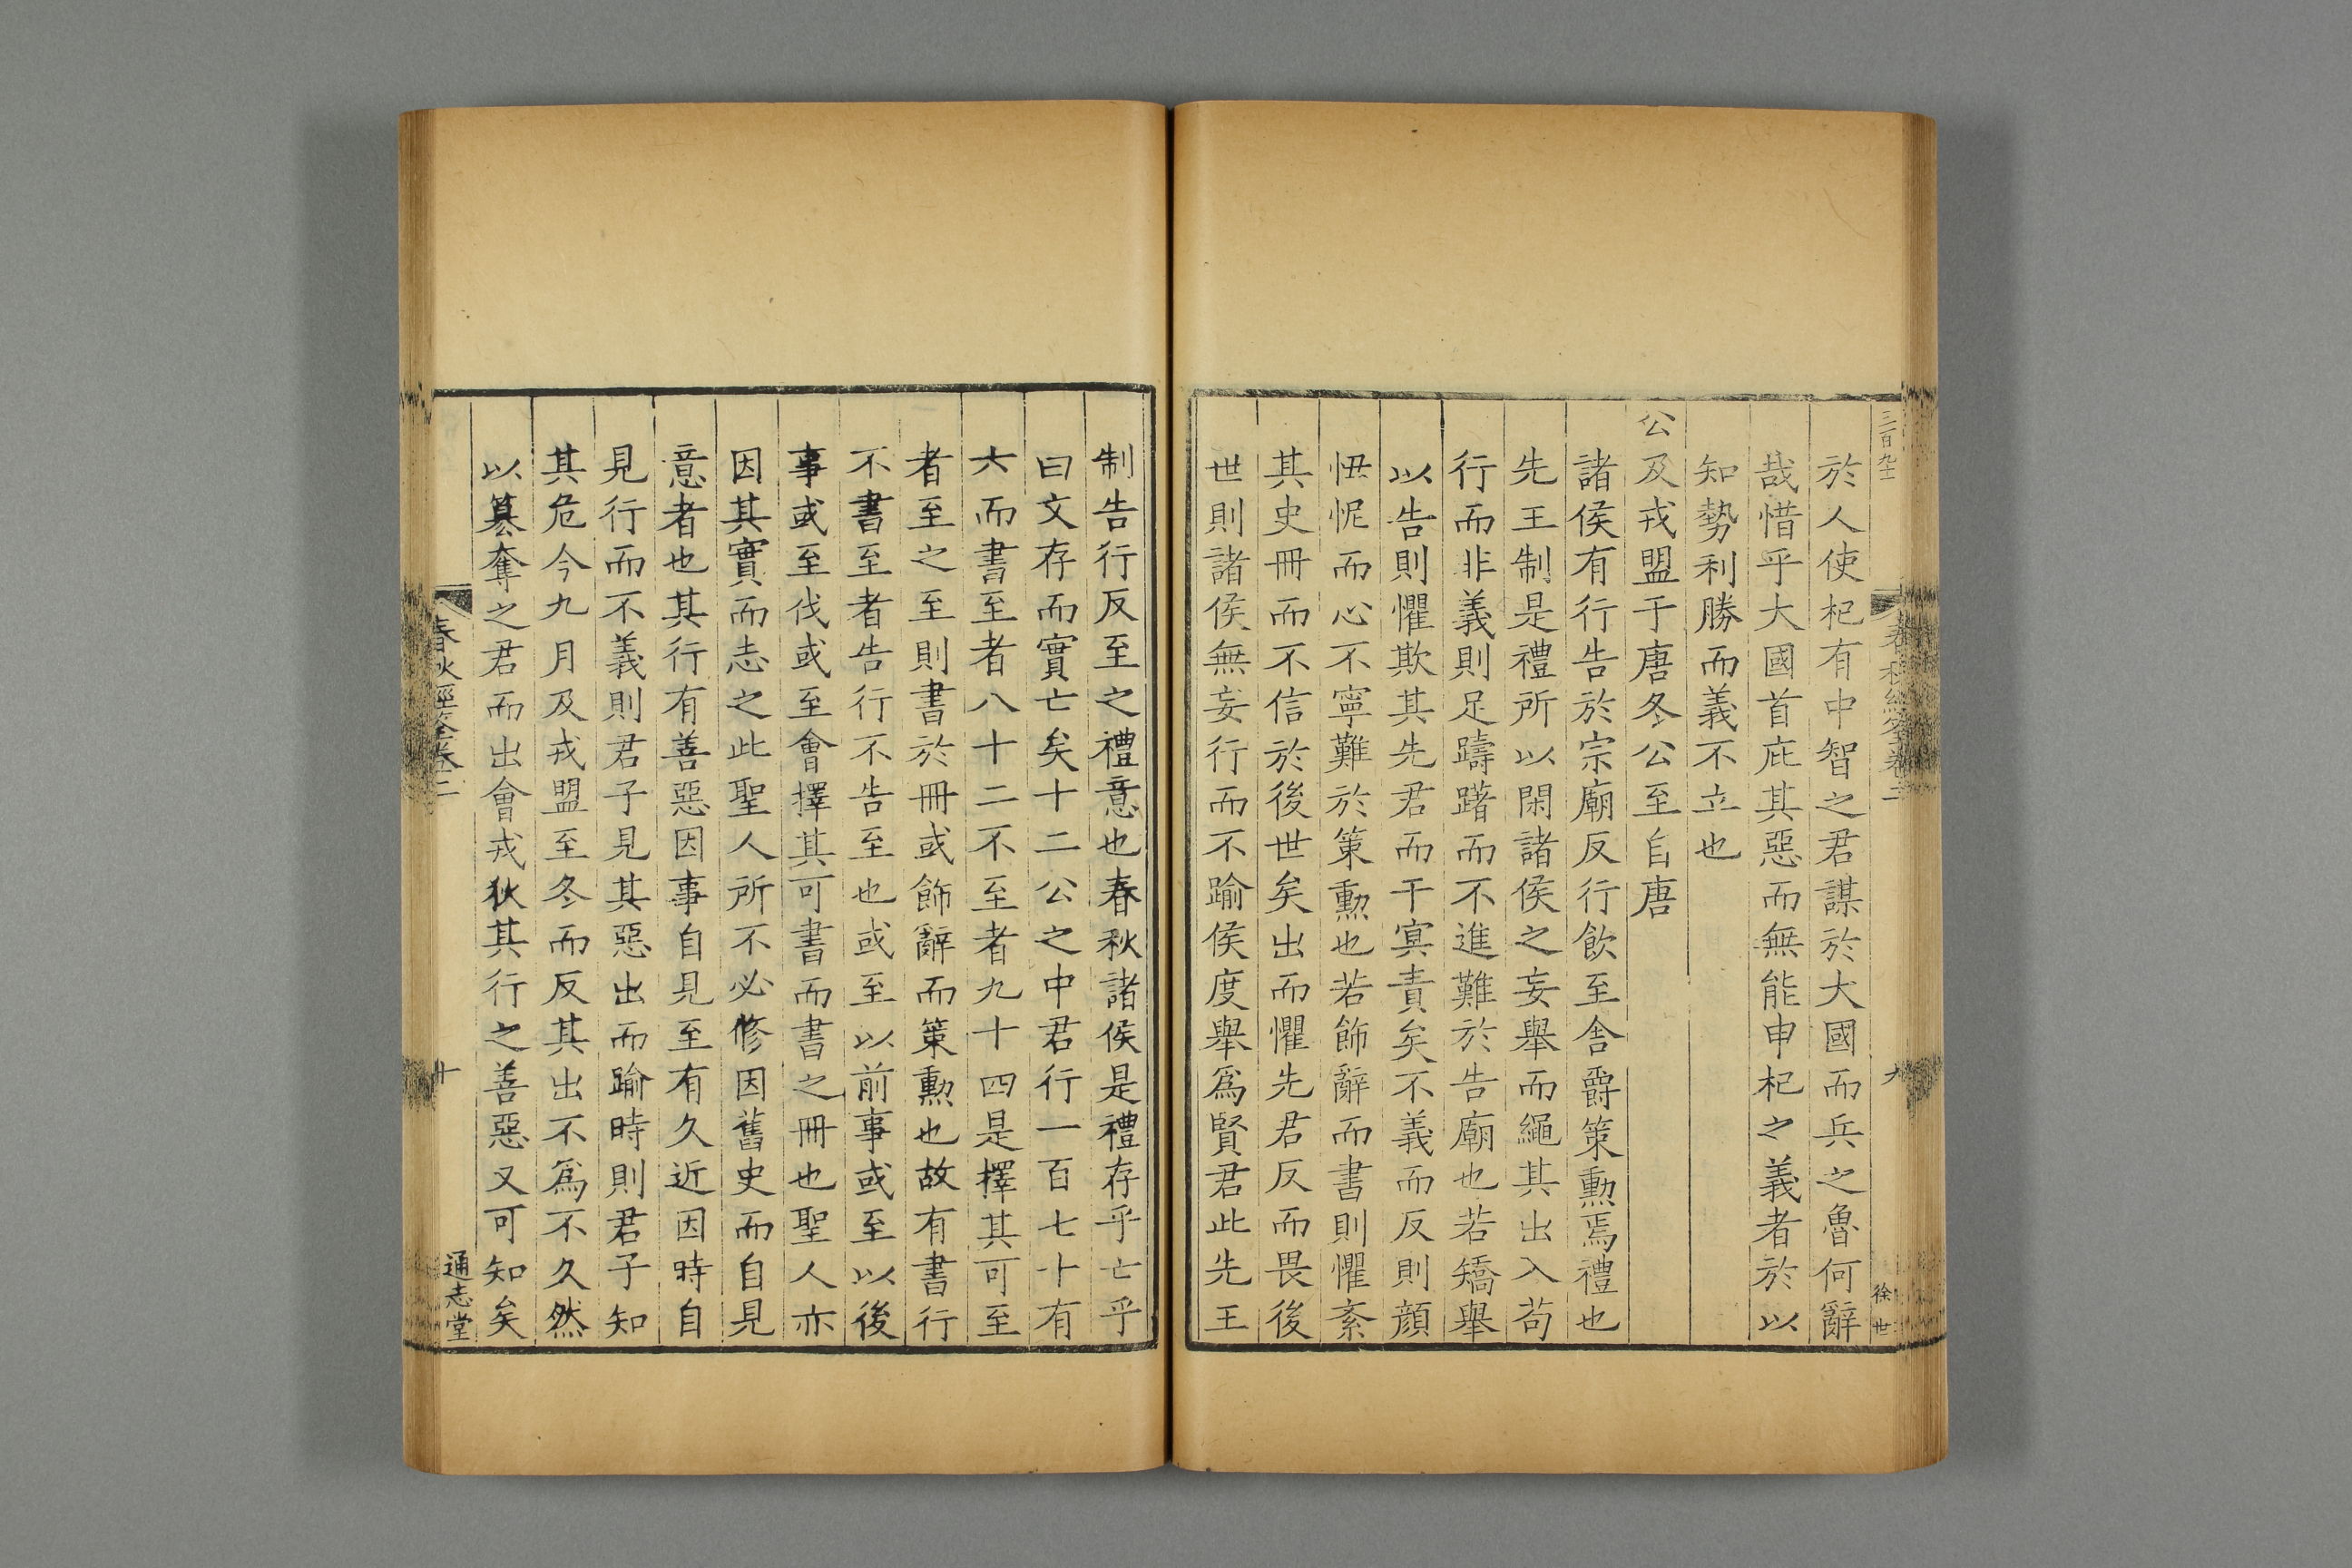 三百九十
春秋經筌卷二
九
徐世
於人使杞有中智之君謀於大國而兵之魯何辭
哉惜乎大國首庇其惡而無能申杞之義者於以
知勢利勝而義不立也
公及戎盟于唐冬公至自唐
諸侯有行告於宗廟反行飲至舍爵策勲焉禮也
先王制是禮所以閑諸侯之妄舉而繩其出入苟
行而非義則足躊躇而不進難於告廟也若矯舉
以告則懼欺其先君而干寘責矣不義而反則顔
忸怩而心不寧難於策勲也若飾辭而書則懼紊
其史冊而不信於後世矣出而懼先君反而畏後
世則諸侯無妄行而不踰侯度舉爲賢君此先王
制告行反至之禮意也春秋諸侯是禮存乎亡乎
曰文存而實亡矣十二公之中君行一百七十有
六而書至者八十二不至者九十四是擇其可至
者至之至則書於冊或飾辭而策勲也故有書行
不書至者告行不告至也或至以前事或至以後
事或至伐或至會擇其可書而書之冊也聖人亦
因其實而志之此聖人所不必修因舊史而自見
意者也其行有善惡因事自見至有久近因時自
見行而不義則君子見其惡出而踰時則君子知
其危今九月及戎盟至冬而反其出不爲不久然
以簒奪之君而出會戎狄其行之善惡又可知矣
春秋經筌卷二
十
通志堂